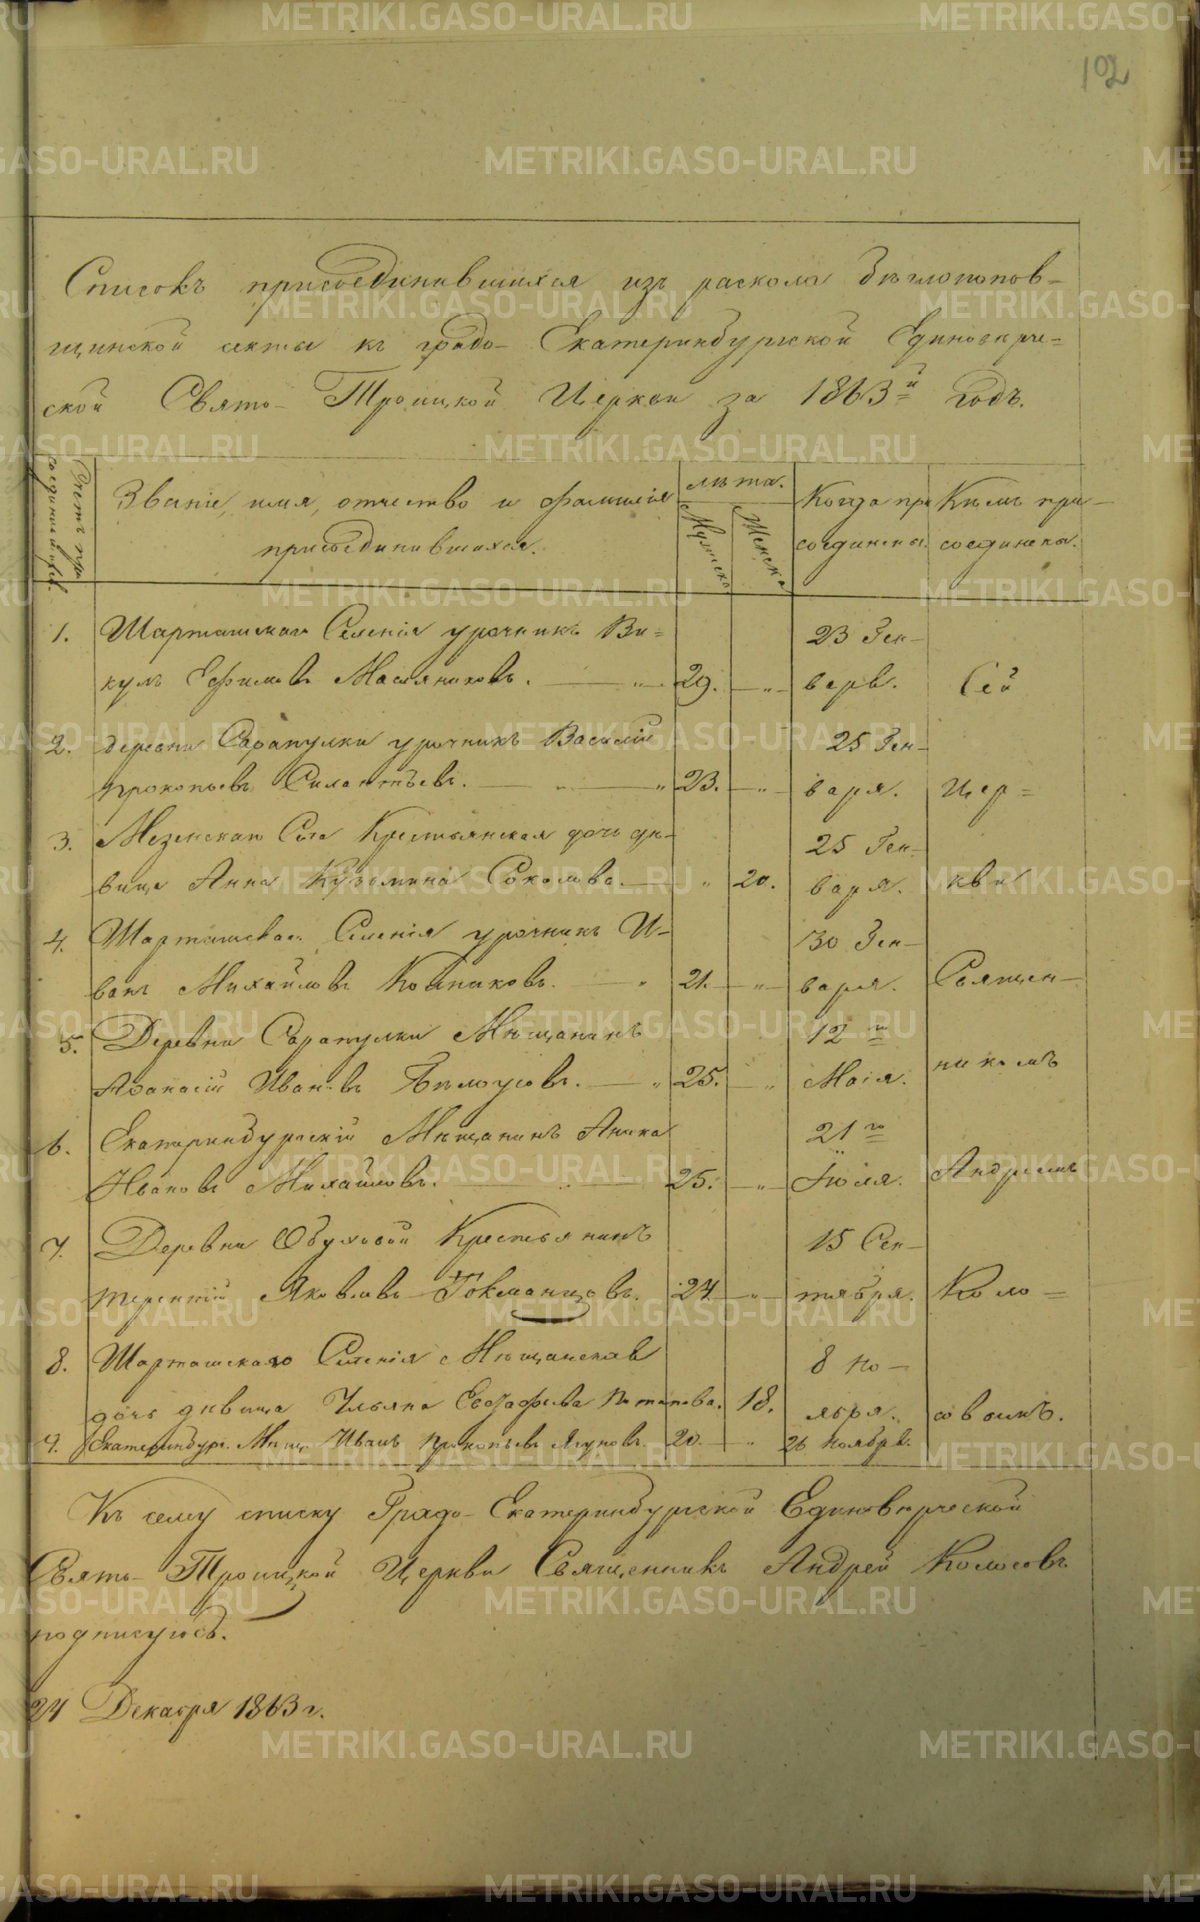 102
Списокъ присоединившихся изъ раскола бѣглопопов-
щинской секты къ градо- Екатеринбургской Единовѣрче-
ской Свято- Троицкой Церкви за 1863й годъ.
Счетъ при
соединившихся.
Званіе, имя, отчество и фамилія
присоединившихся.
лѣта.
Мужеска
Женска
Когда при
соединены.
Кѣмъ при-
соединены.
1. Шарташскаго Селенія урочникъ Ви- 23 Ген-
кулъ Ефимовъ Масляниковъ. 29. „ варя. Сей
2. деревни Сарапулки урочникъ Василій 25 Ген-
Прокопьевъ Силантьевъ. 23. „ варя. Цер-
3. Мезенскаго Села Крестьянская дочь дѣ- 25 Ген-
вица Анна Кузьмина Соколова. „ 20. варя. кви
4. Шарташскаго Селенія урочникъ И- 30 Ген-
ванъ Михайловъ 21. „ варя. Священ-
5. Деревни Сарапулки Мѣщанинъ 12 го
Афанасій Ивановъ Бѣлоусовъ. 25. „ Маія. никомъ
6. Екатеринбургскій Мѣщанинъ Аника 21 го
Ивановъ Михайловъ. 25. „ Іюля. Андреемъ
7. Деревни Обуховой Крестьянинъ 15 Сен-
Терентій Яковлевъ Токманцовъ. 24 „ тября. Коло-
8. Шарташскаго Селенія Мѣщанская 8 Но-
дочь дѣвица Ульяна Потапова. 18. ября. совымъ.
9. Екатеринбург. Мѣщ. Иванъ Прокопьевъ Ягуновъ. 20. „ 26 Ноября.
Къ сему списку Градо- Екатеринбургской Единовѣрческой
Свято- Троицкой Церкви Священникъ Андрей Колосовъ
подписуюсь.
24 Декабря 1863 г.
METRIKI.GASO-URAL.RU